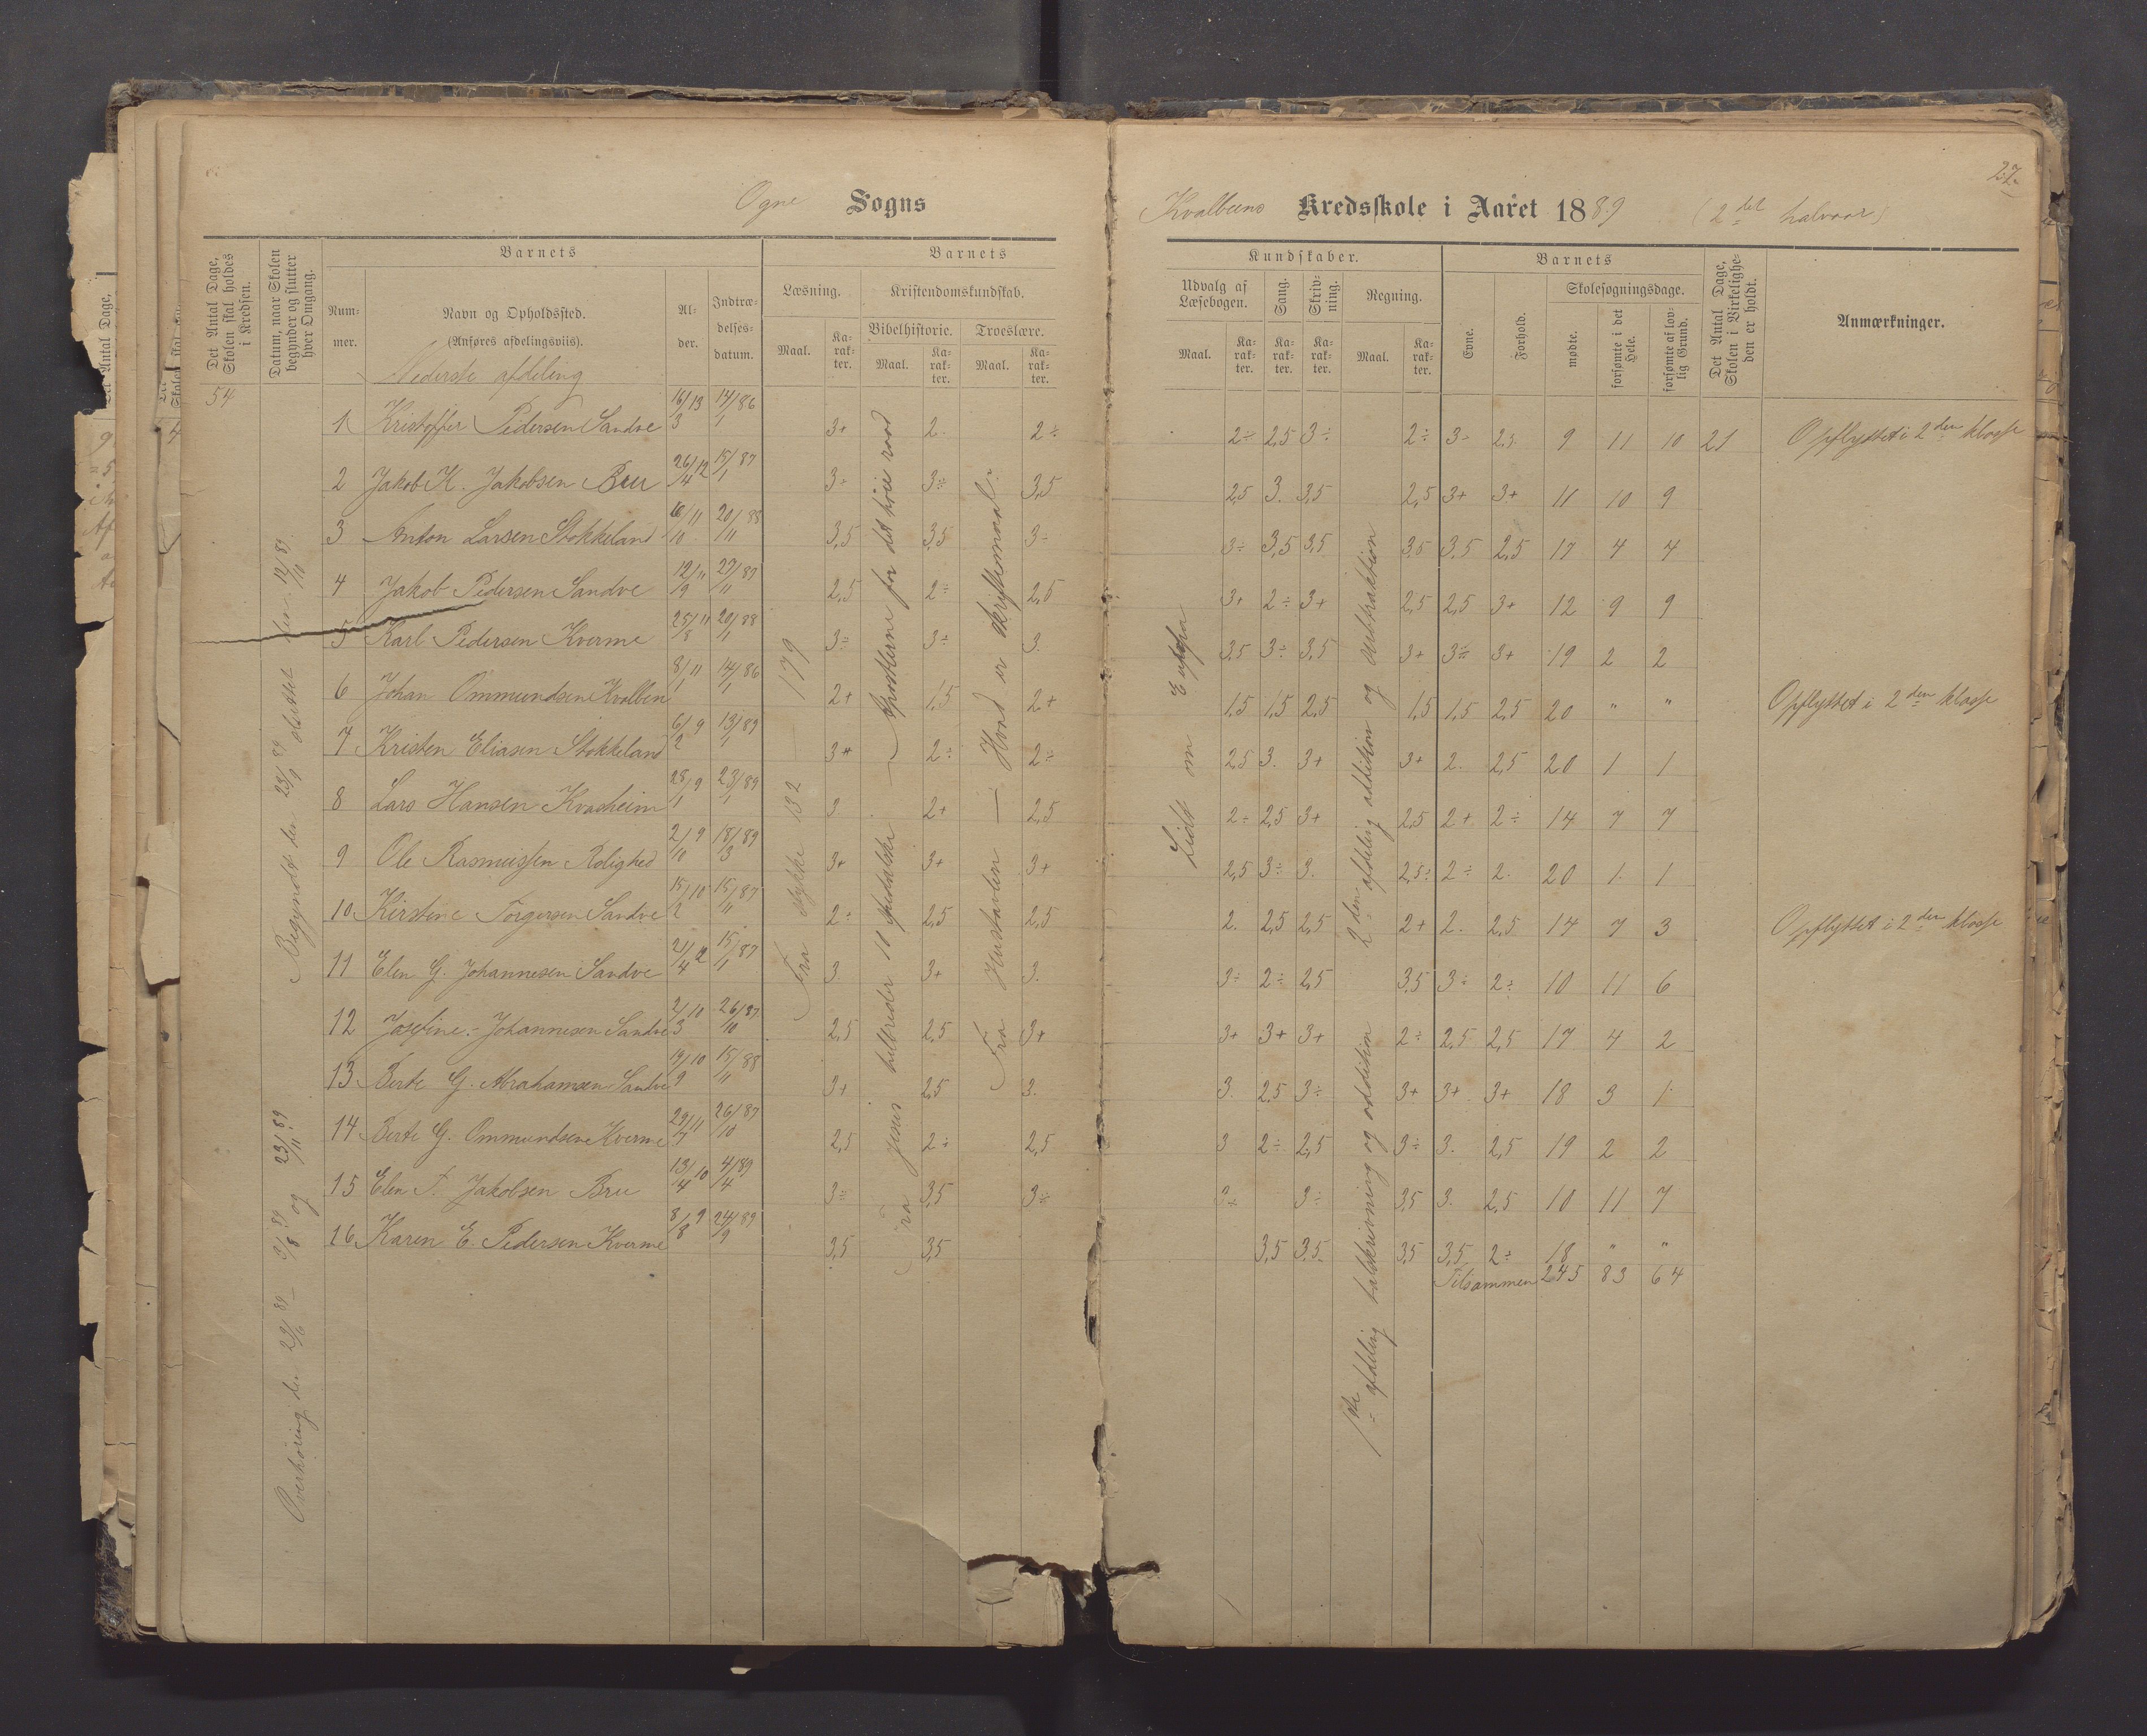 27.
Ogne Sogns
Kvalbens Kredsskole i Aaret 1889 (2det halvaar)
Det Antal Dage, Skolen skal holdes i Kredsen.
Datum, naar Skolen begynder og slutter hver Omgang.
Barnets
Nummer.
Navn og Opholdssted.
(Anføres afdelingsviis).
Alder.
Indtrædelsesdatum.
Barnets
Læsning.
Maal.
Karakter.
Kristendomskundskab.
Bibelhistorie.
Maal.
Karakter.
Troeslære.
Maal.
Karakter.
Kundskaber.
Udvalg af Læsebogen.
Maal.
Karakter.
Sang.
Karakter.
Skrivning.
Karakter.
Regning.
Maal.
Karakter.
Barnets
Evne.
Forhold.
Skolesøgningsdage.
mødte.
forsømte i det Hele.
forsømte af lovlig Grund.
Det Antal Dage, Skolen i Virkeligheden er holdt.
Anmærkninger.
Nederste afdeling
54
1 Kristoffer Pedersen Sandve 16/3 13 14/1 86 3+ 2 2÷ 2÷ 2,5 3÷ 2÷ 3÷ 2,5 9 11 10 21 Opflyttet i 2den klasse
2 Jakob K. Jakobsen Bru 26/4 12 15/1 87 3÷ 3÷ 3,5 2,5 3. 3,5 2,5 3+ 3+ 11 10 9
3 Anton Larsen Stokkeland 16/10 11 20/11 88 3,5 3,5 3÷ 3÷ 3,5 3,5 3,5 3,5 2,5 17 4 4
4 Jakob Pedersen Sandve 12/9 11 27/11 87 2,5 2÷ 2,5 3+ 2÷ 3+ 2,5 2,5 3+ 12 9 9
5 Karl Pedersen Kverme 25/8 11 20/1 88 3÷ 3÷ 3. 3,5 3÷ 3,5 3+ 3÷ 3+ 19 2 2
6 Johan Ommundsen Kvalben 8/1 11 14/1 86 2+ 1,5 2+ 1,5 1,5 2,5 1,5 1,5 2,5 20 " " Opflyttet i 2den klasse
7 Kristen Eliasen Stokkeland 6/2 9 13/1 89 3+ 2÷ 2÷ 2,5 3. 3+ 3+ 2. 2,5 20 1 1
8 Lars Hansen Kvasheim 28/1 9 23/1 89 3 2+ 2,5 2÷ 2,5 3+ 2,5 2+ 2÷ 14 7 7
9 Ole Rasmussen Rolighed 2/10 9 18/3 89 3+ 3+ 3+ 2,5 3÷ 3. 2,5÷ 2÷ 2. 20 1. 1
10 Kirstine Torgersen Sandve 15/2 10 15/11 87 2÷ 2,5 2,5 2. 2,5 2,5 2+ 2. 2,5 14 7 3 Opflyttet i 2den klasse
11 Elen G. Johannesen Sandve 21/4 12 15/1 87 3. 3+ 3. 3÷ 2÷ 2,5 3,5 3÷ 2÷ 10 11 6
12 Josefine Johannesen Sandve 2/3 10 26/10 87 2,5 2,5 3+ 3+ 3+ 3+ 2÷ 2,5 2,5 17 4 2
13 Berte G. Abrahamsen Sandve 19/9 10 15/11 88 3+ 2,5 3. 3. 2,5 3÷ 3+ 3+ 3+ 18 3 1
14 Berte G. Ommundsen Kverme 29/7 11 26/10 87 2,5 2÷ 2,5 3 2÷ 2,5 3÷ 3. 2,5 19 2 2
15 Elen T. Jakobsen Bru 13/4 10 4/4 89 3÷ 3,5 3÷ 3÷ 3÷ 3,5 3. 2,5 10 11 7
16 Karen E. Pedersen Kverme 8/8 9 24/9 89 3,5 3,5 3,5 3,5 3,5 3,5 2÷ 18 " "
Tilsammen 245 83 64
Begyndt den 23/9 89 sluttet den 12/11 89
Overhøring den 29/6 89 – 31/8 89 og 23/11 89
Fra stykke 132 – 179
Fra Jesus helbreder 10 spedalske – Apostlerne for det høie raad
Fra Hustavlen – Hvad er skriftemaal?
Lidt om Europa
1ste afdeling talskrivning og addition
2den afdeling addition og subtraktion